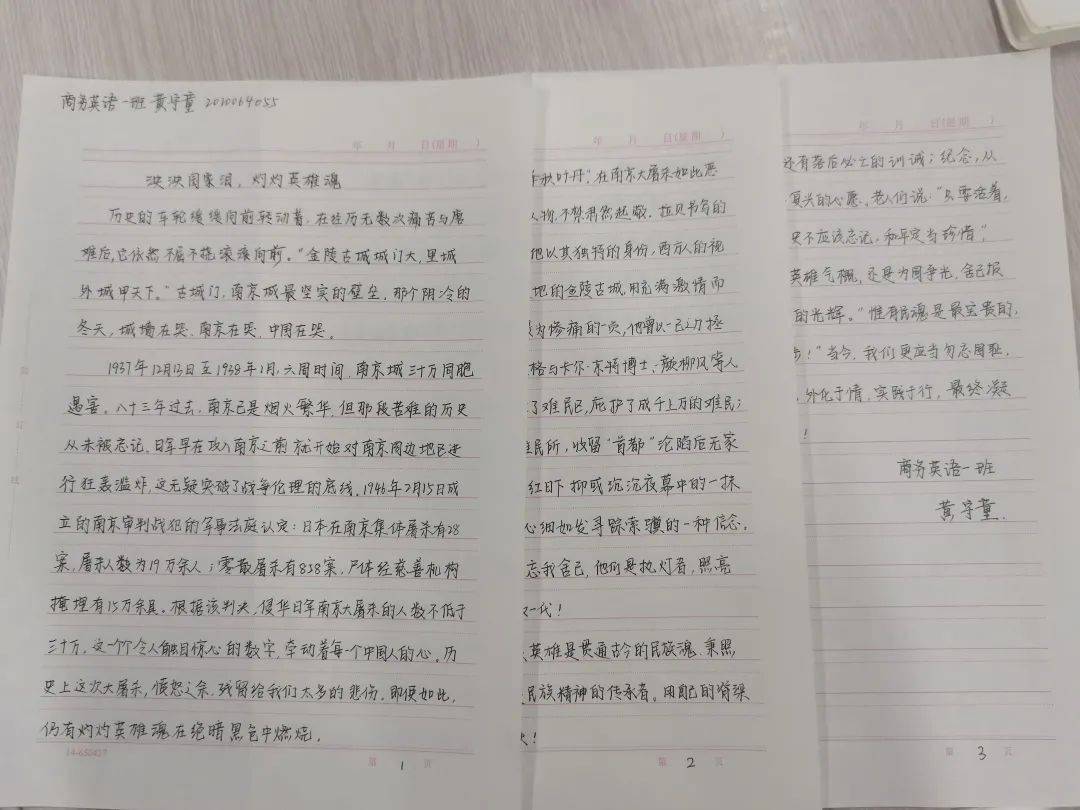 商务英语一班 黄守童 2020064055
年 月 日(星期 )
泱泱国家泪，灼灼英雄魂
历史的车轮缓缓向前转动着，在经历无数次痛苦与磨
难后，它依然不屈不挠滚滚向前。“金陵古城城门大，里城
外城甲天下。”古城门，南京城最坚实的壁垒，那个阴冷的
冬天，城墙在哭，南京在哭，中国在哭。
1937年12月13日至1938年1月，六周时间，南京城三十万同胞
遇害。八十三年过去，南京已是烟火繁华，但那段苦难的历史
从未被忘记，日军早在攻入南京之前就开始对南京周边地区进
行狂轰滥炸，这无疑突破了战争伦理的底线。1946年2月15日成
立的南京审判战犯的军事法庭认定：日本在南京集体屠杀有28
案，屠杀人数为19万余人；零散屠杀有858案，尸体经慈善机构
掩埋有15万余具。根据该判决，侵华日军南京大屠杀的人数不低于
三十万，这一个个令人触目惊心的数字，牵动着每一个中国人的心。历
史上这次大屠杀，愤怒之余，残留给我们太多的悲伤。即便如此，
仍有灼灼英雄魂在绝暗黑色中燃烧。
14-650427
第 1 页
年 月 日(星期 )
秋叶丹”，在南京大屠杀如此恶
人物，不禁肃然起敬。拉贝书写的
他以其独特的身份，西方人的视
地的金陵古城，用充满激情而
为疼痛的一页，他曾以一己之力拯
格与卡尔·京特博士、颜柳风等人
了难民区，庇护了成千上万的难民；
难民所，收留“首都”沦陷后无家
红日下抑或沉沉夜幕中的一抹
心细如发寻踪索骥的一种信念。
忘我舍己，他们是执灯者，照亮
一代！
英雄是贯通古今的民族魂，秉照
民族精神的传承者。用自己的脊梁
！
第 2 页
年 月 日(星期 )
还有落后必亡的训诫；纪念，从
复兴的心愿。老人们说：“只要活着，
史不应该忘记，和平定当珍惜”，
英雄气概，还是为国争光，舍己报
的光辉。“惟有民魂是最宝贵的，
步！”当今，我们更应当勿忘国耻，
，外化于情，实践于行，最终凝
！
商务英语一班
黄守童
第 3 页